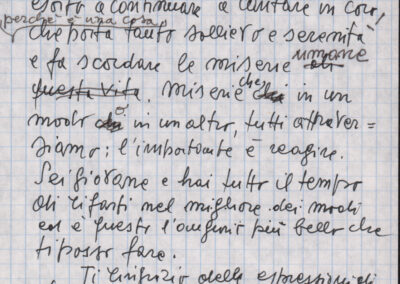 esorto a continuare a cantare in coro,
perché è una cosa
che porta tanto sollievo e serenità
e fa scordare le miserie umane
questa vita. miserie che in un
modo o in un altro, tutti attraver=
siamo; l'importante è reagire.
Sei giovane e hai tutto il tempo
di rifarti nel migliore dei modi
ed è questo l'augurio più bello che
ti posso fare.
Ti ringrazio delle espressioni di